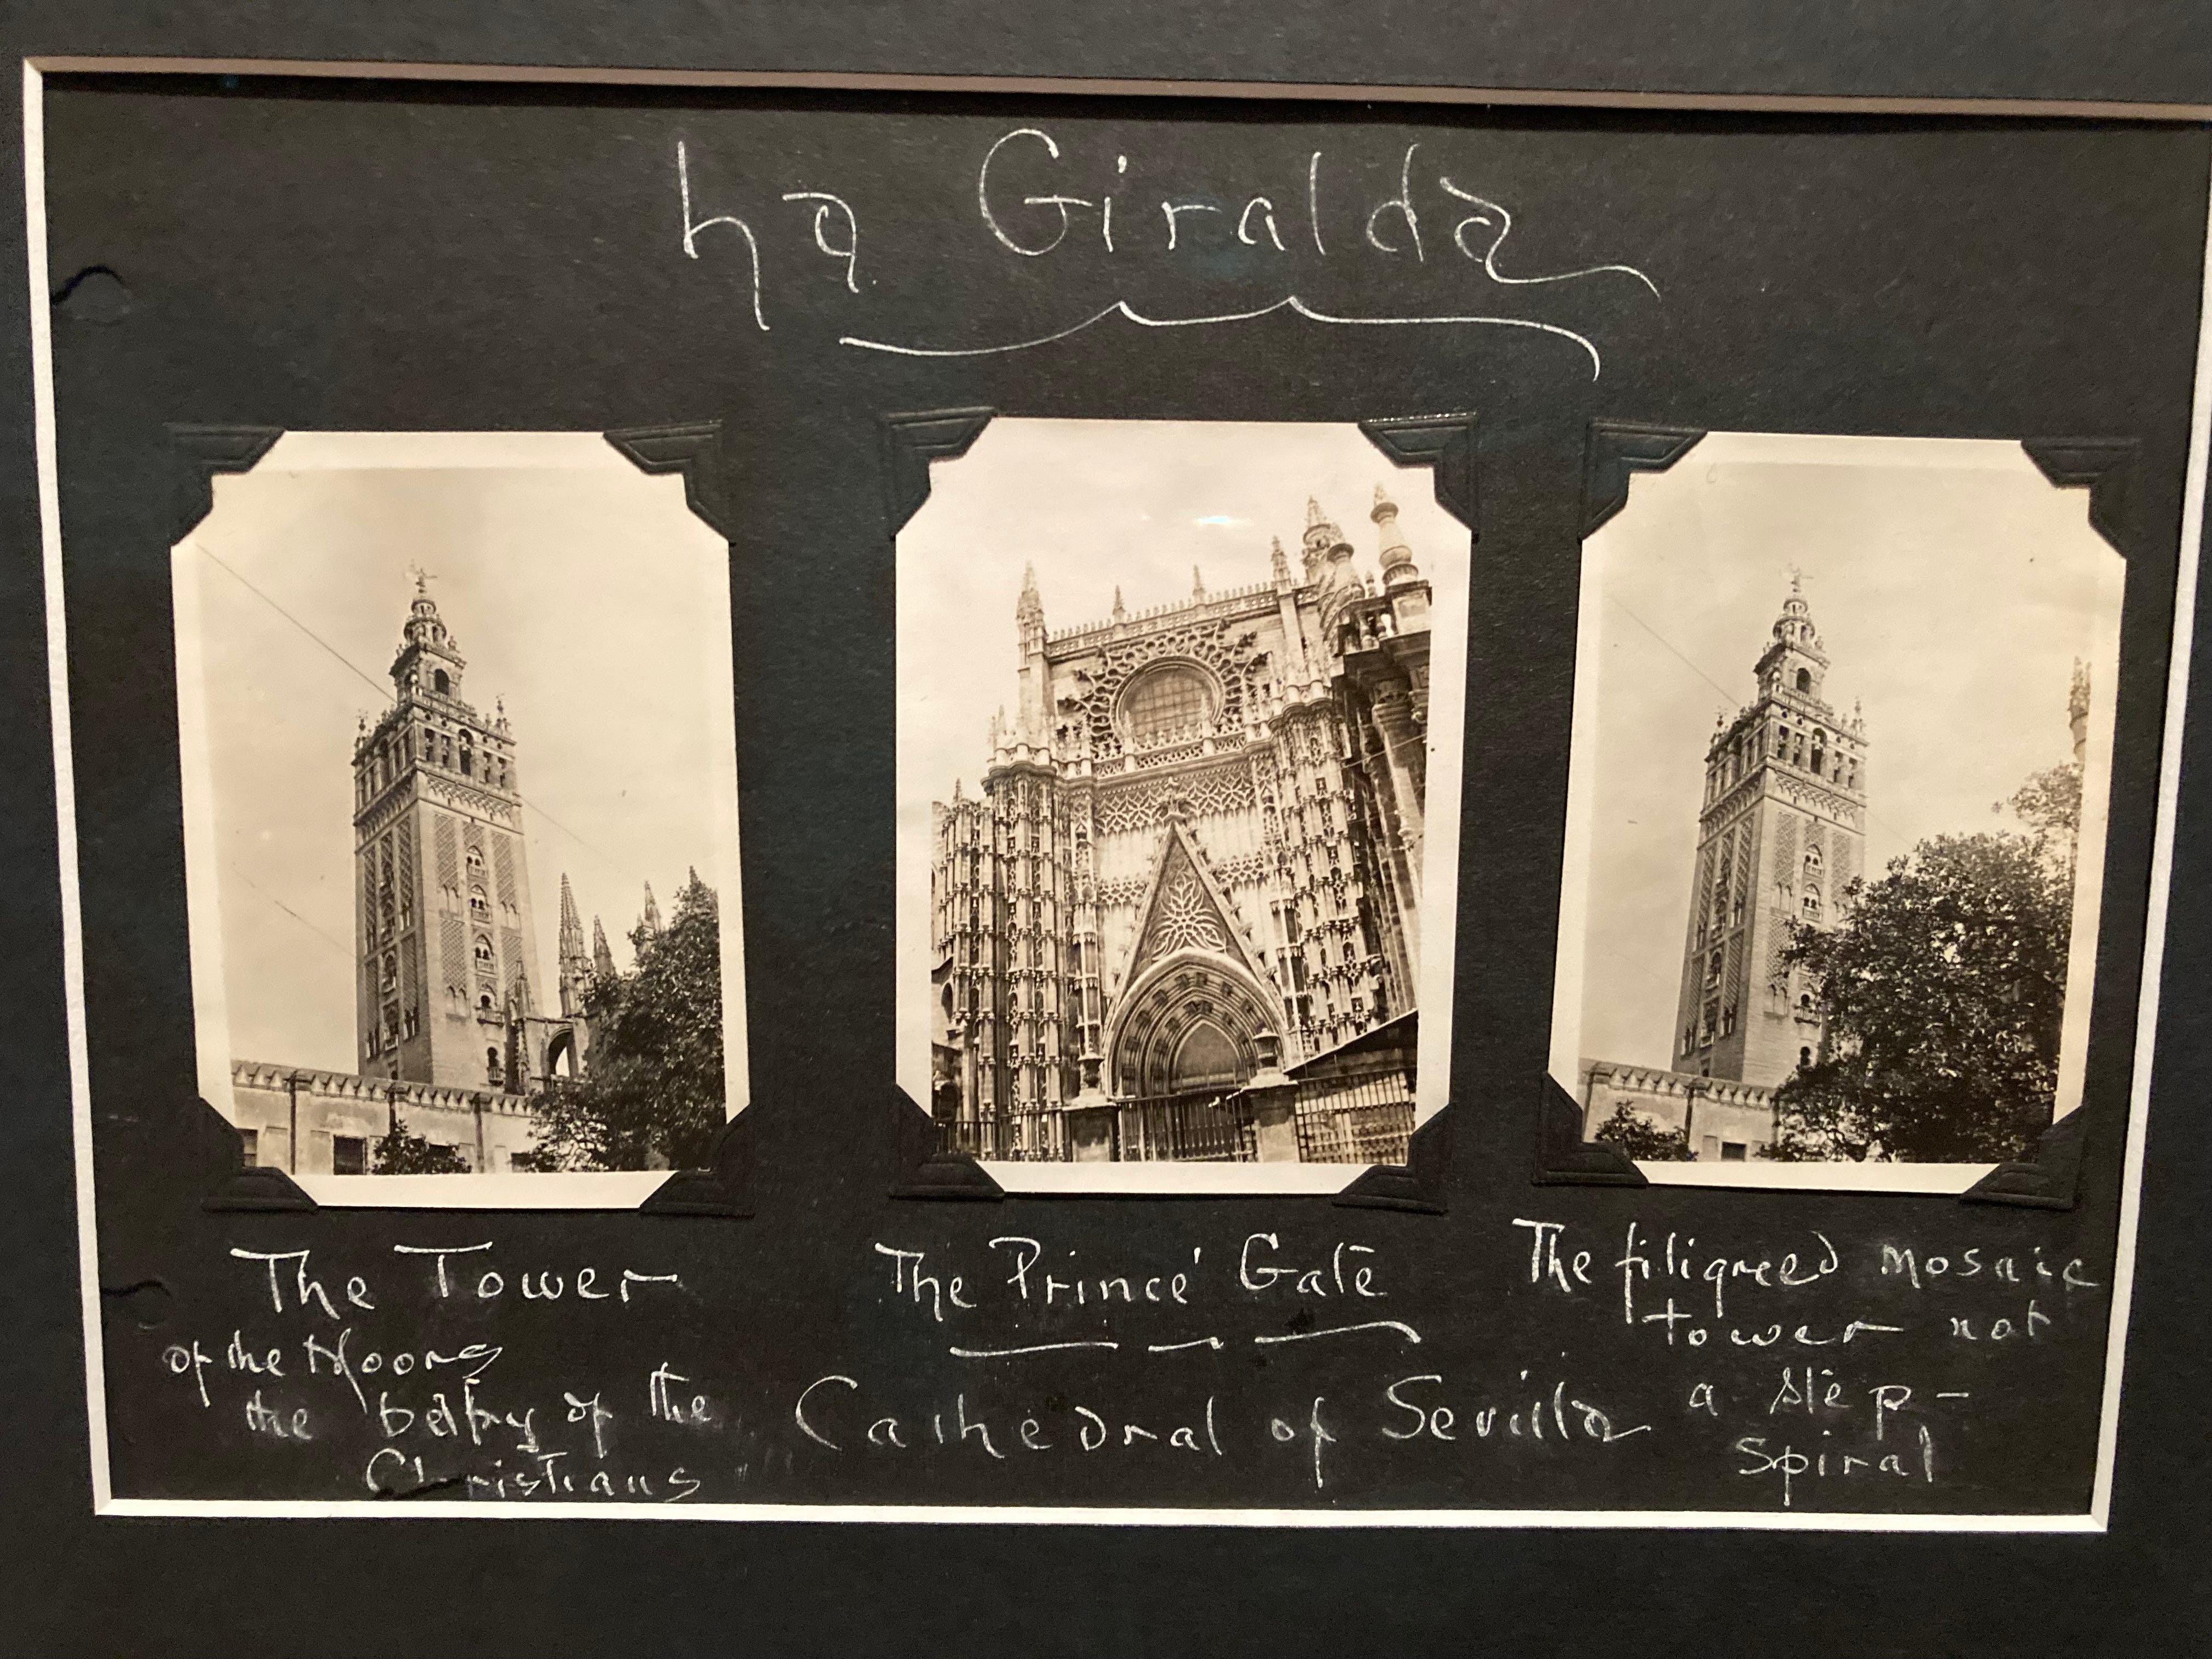 La Giralda
The Tower
of the Moors
the belfry of the
Christians
The Prince' Gate
Cathedral of Sevilla
The filigreed mosaic
tower not
a step-
spiral